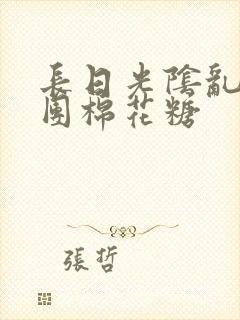 長日光陰亂
團棉花糖
張哲